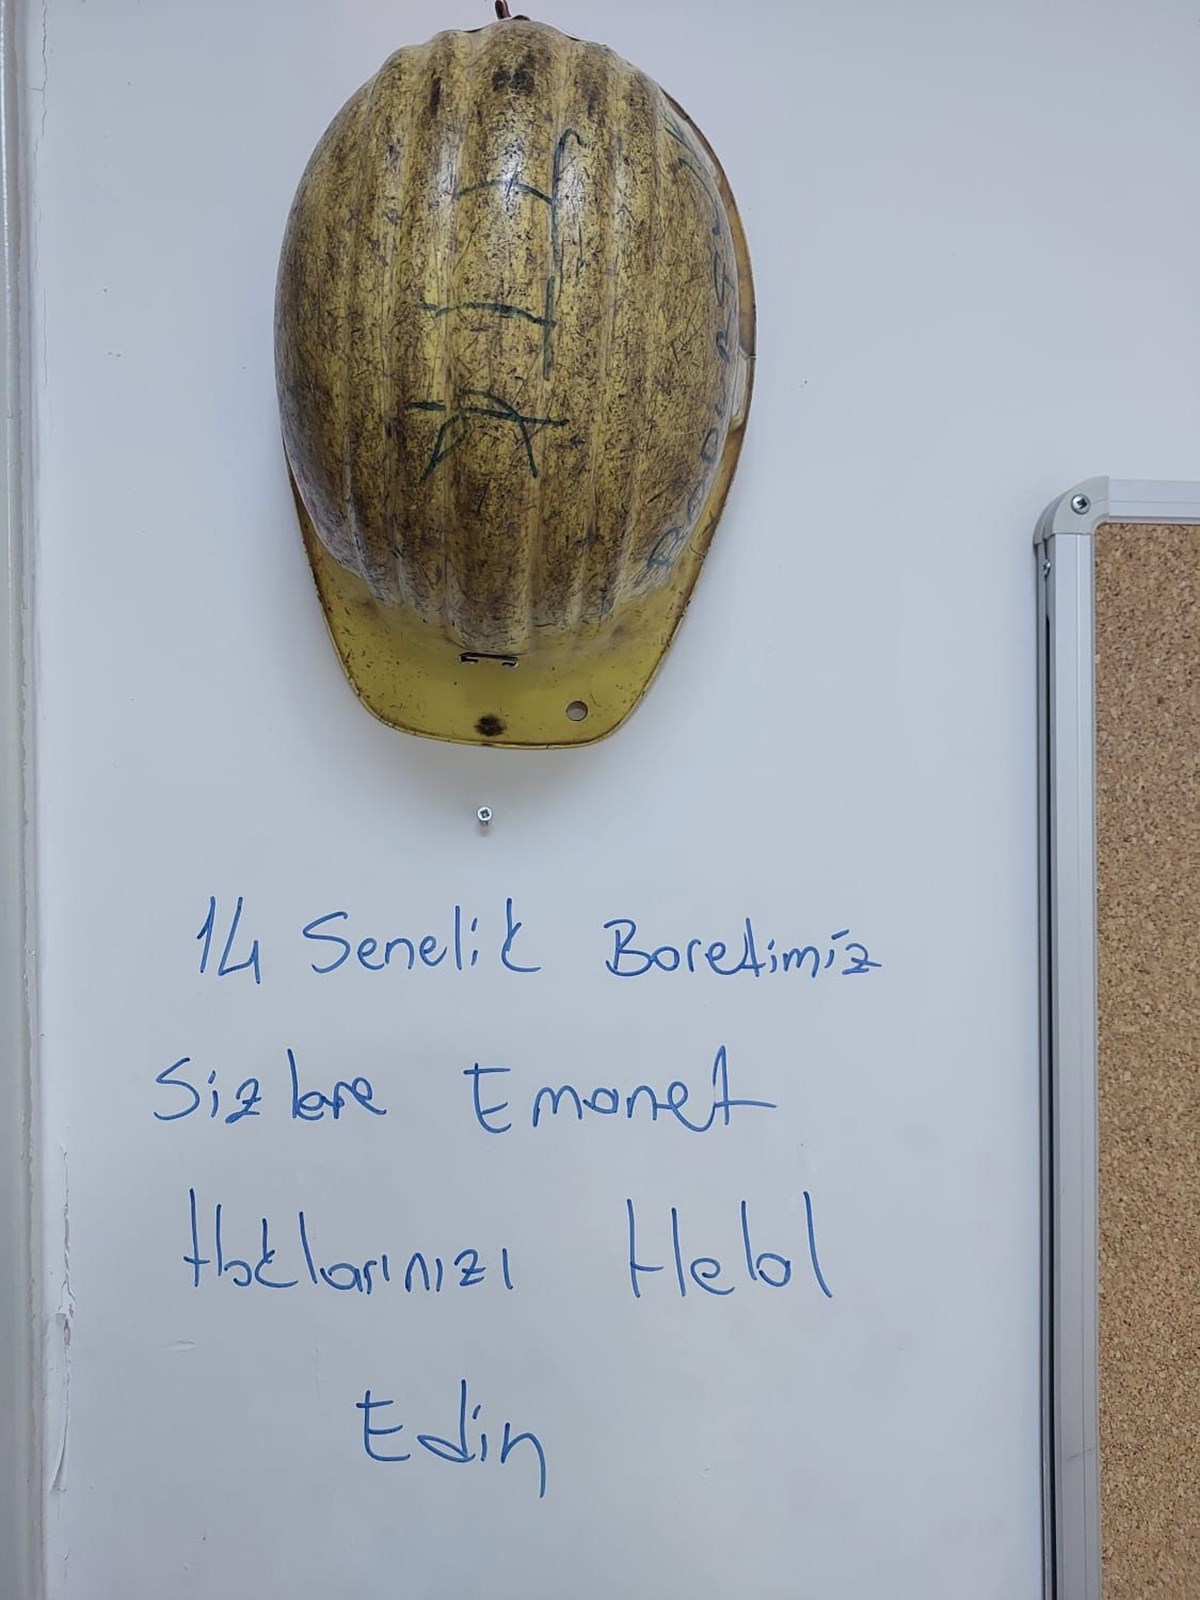 14 Senelik Baretimiz
Sizlere Emanet
Haklarınızı Helal
Edin